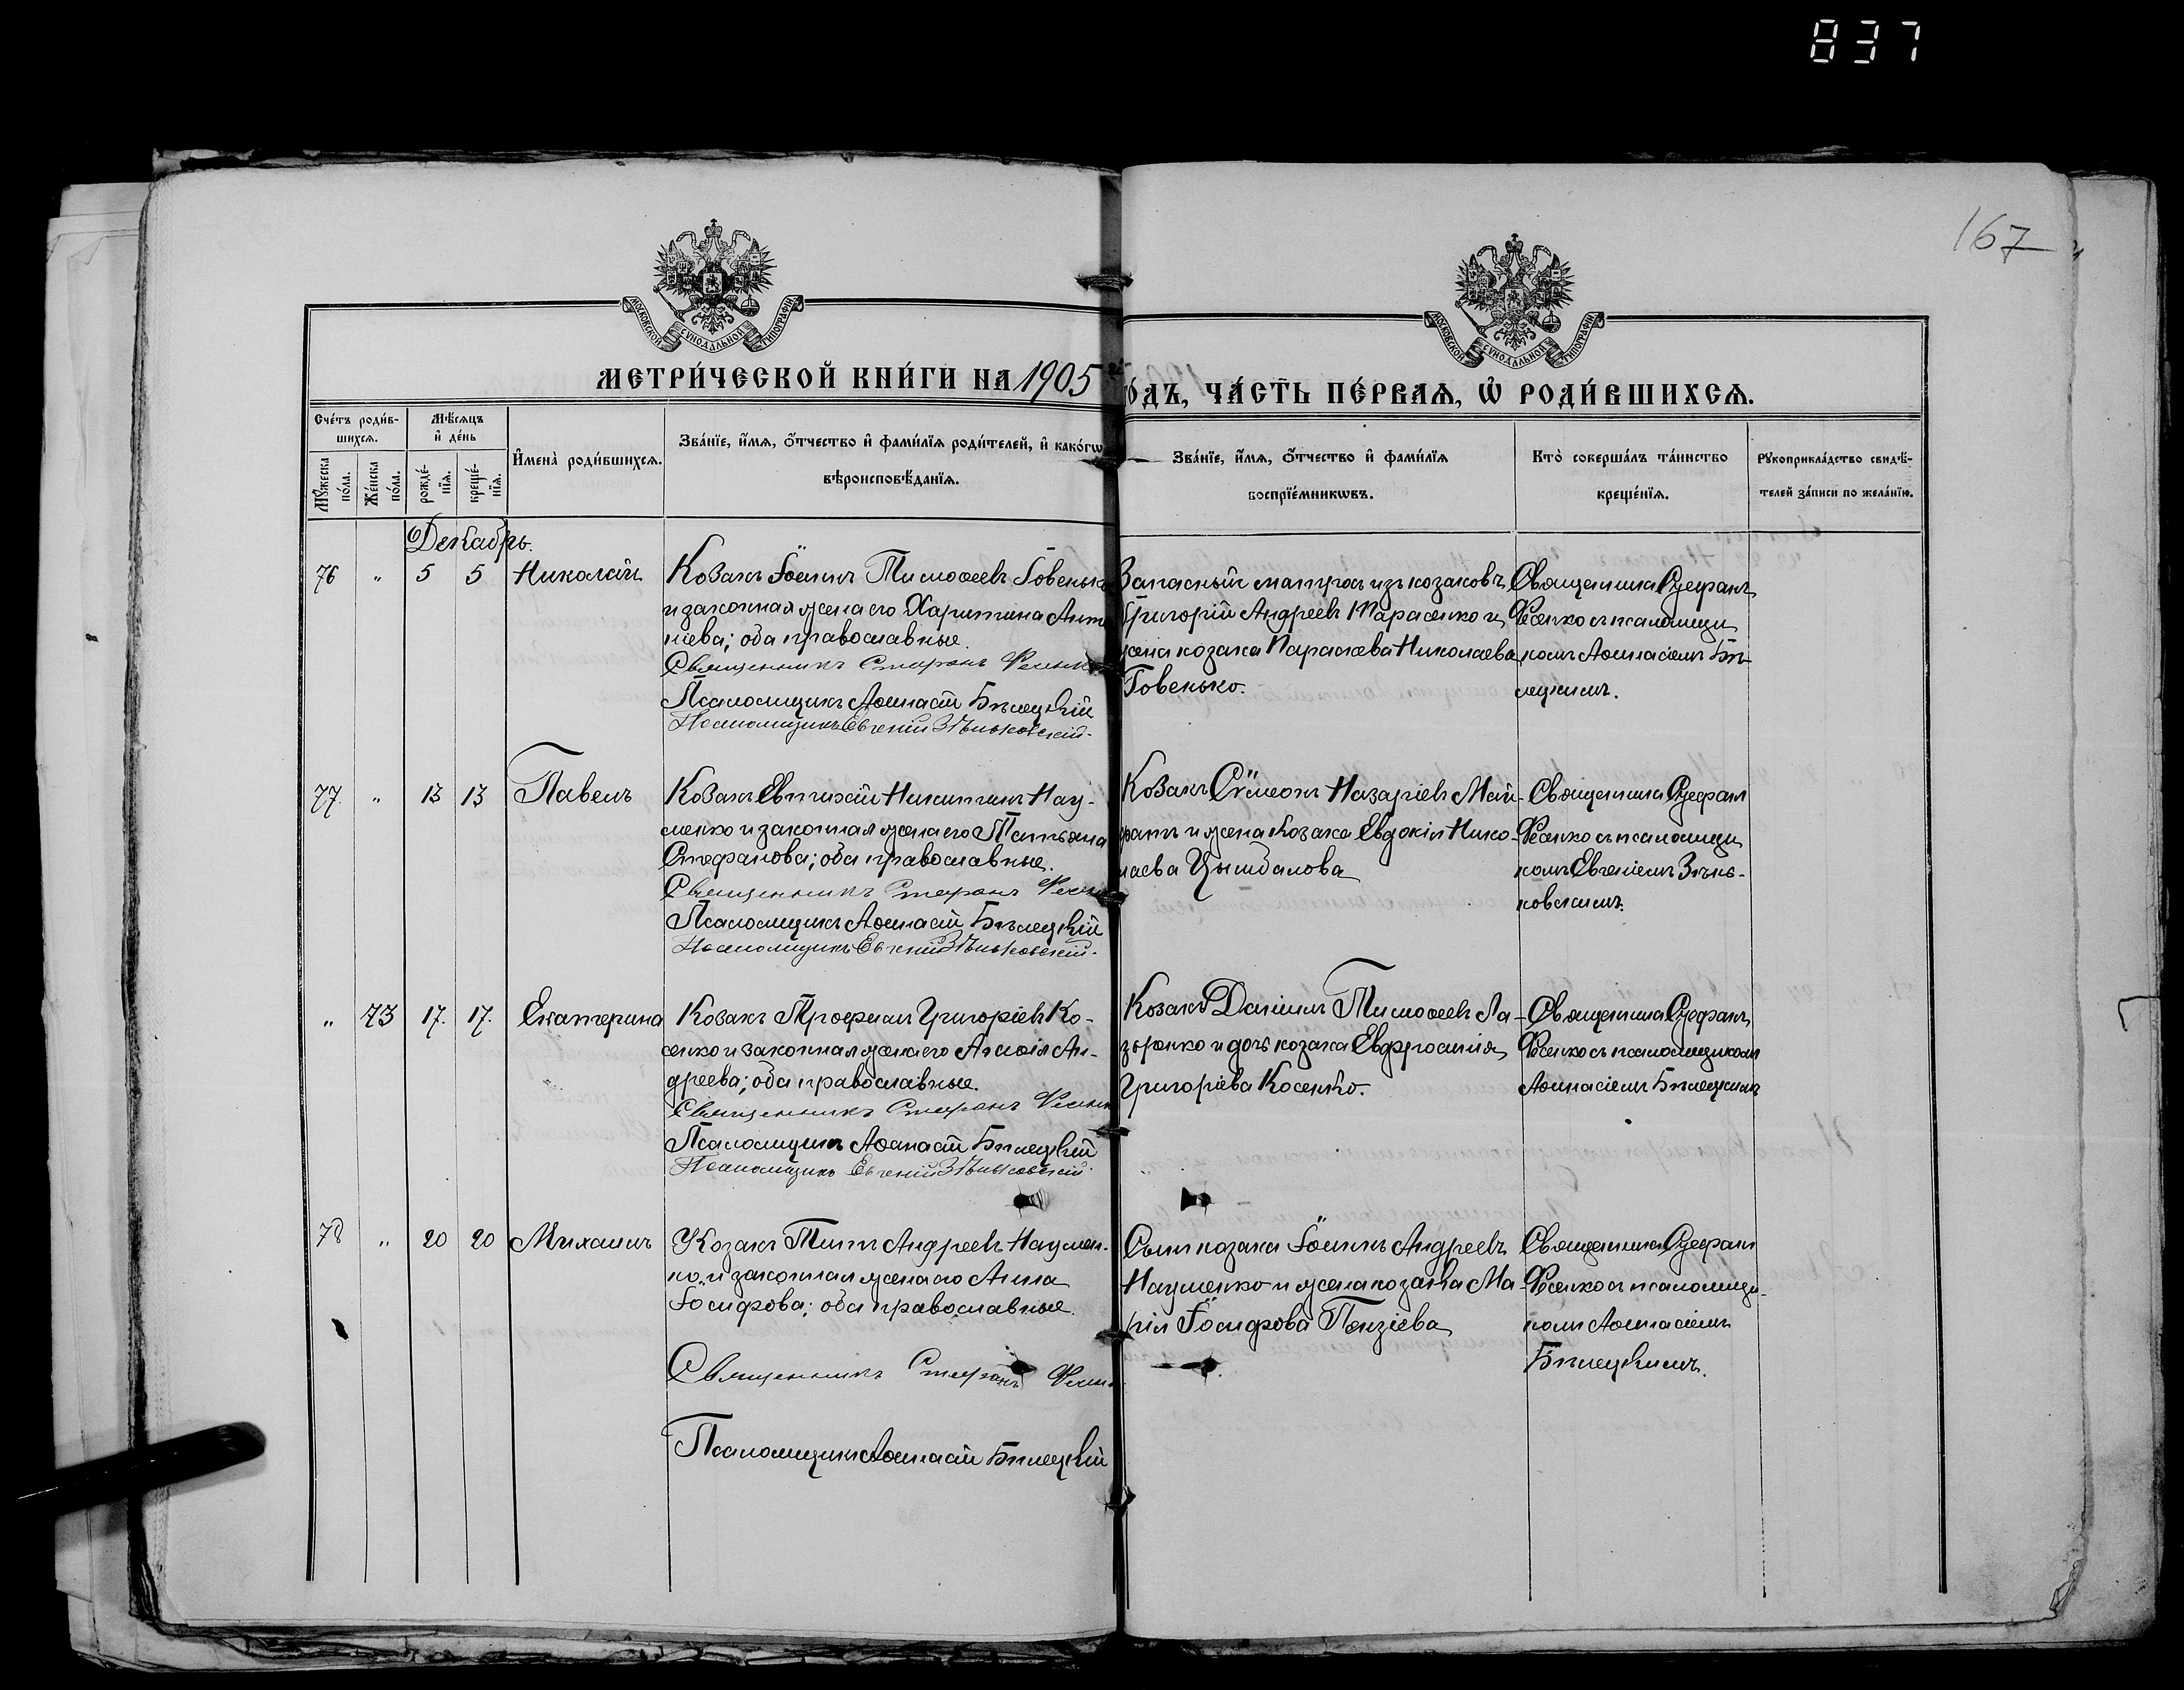 837
167
МОСКОВСКОЙ СУНОДАЛЬНОЙ ТИПОГРАФІИ
МОСКОВСКОЙ СУНОДАЛЬНОЙ ТИПОГРАФІИ
МЕТРИ́ЧЕСКОЙ КНИ́ГИ НА 1905
О́ДЪ, ЧА́СТЬ ПЕ́РВАѦ, Ѡ҆ РОДИ́ВШИХСѦ.
Сче́тъ роди́в-
шихсѧ.
Мѣ́сѧцъ
и҆ де́нь
Мꙋ́жеска по́ла.
Же́нска по́ла.
рожде́-нїѧ.
креще́-нїѧ.
И҆мена̀ роди́вшихсѧ.
Зва́нїе, и҆́мѧ, ѻ҆́тчество и҆ фами́лїѧ роди́телей, и҆ како́гѡ
вѣроисповѣ́данїѧ.
Зва́нїе, и҆́мѧ, ѻ҆́тчество и҆ фами́лїѧ
воспрїе́мникѡвъ.
Кто̀ соверша́лъ та́инство
креще́нїѧ.
Рꙋкоприкла́дство свидѣ́-
телей за́писи по жела́нїю.
Декабрь.
76 " 5 5 Николай
Козакъ Іоаннъ Тимоѳеевъ Говенько
и законная жена его Харитина Анто
ніева; оба православные.
Священникъ Стефанъ Фесенко
Псаломщикъ Аѳанасій Бѣлецкій
Псаломщикъ Евгеній Зѣньковскій.
Запасный матросъ изъ козаковъ
Григорій Андреевъ Тарасенко и
жена козака Параскева Николаева
Говенько.
Священникъ Стефанъ
Фесенко съ псаломщи
комъ Аѳанасіемъ Бѣ-
лецкимъ.
77. " 13 13 Павелъ
Козакъ Евтихій Никитинъ Нау-
менко и законная жена его Татьяна
Стефанова; оба православные.
Священникъ Стефанъ Фесен
Псаломщикъ Аѳанасій Бѣлецкій
Псаломщикъ Евгеній Зѣньковскій.
Козакъ Сѵмеонъ Назаріевъ Май-
и жена козака Евдокія Нико-
лаева Цымбалова
Священникъ Стефанъ
Фесенко съ псаломщи
комъ Евгеніемъ Зѣнь-
ковскимъ.
" 73 17. 17. Екатерина
Козакъ Трофимъ Григоріевъ Ко-
сенко и законная жена его Агаѳія Ан-
дреева; оба православные.
Священникъ Стефанъ Фесенк
Псаломщикъ Аѳанасій Бѣлецкій
Псаломщикъ Евгеній Зѣньковскій.
Козакъ Даніилъ Тимоѳеевъ Ла-
зоренко и дочь козака Евфросинія
Григоріева Косенко.
Священникъ Стефанъ
Фесенко съ псаломщикомъ
Аѳанасіемъ Бѣлецкимъ
78 " 20 20 Михаилъ
Козакъ Титъ Андреевъ Наумен-
ко и законная жена его Анна
Іосифова; оба православные.
Священникъ Стефанъ Фесен
Псаломщикъ Аѳанасій Бѣлецкій
Сынъ козака Іоаннъ Андреевъ
Науменко и жена козака Ма-
рія Іосифова Пензіева
Священникъ Стефанъ
Фесенко съ псаломщи-
комъ Аѳанасіемъ
Бѣлецкимъ.